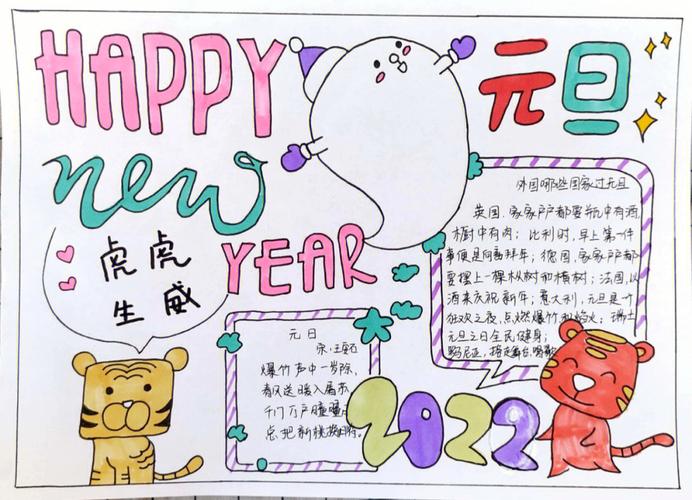 HAPPY
元旦
new
YEAR
虎虎
生威
外国哪些国家过元旦
英国，家家户户都要瓶中有酒，
橱中有肉；比利时，早上第一件
事便是向畜拜年；德国，家家户户都
要摆上一棵枞树和横树；法国，以
酒来庆祝新年；意大利，元旦是一个
狂欢之夜，点燃爆竹和焰火；瑞士
元旦之日全民健身；
元日
宋·王安石
爆竹声中一岁除，
春风送暖入屠苏
千门万户曈曈
总把新桃换旧符。
2022